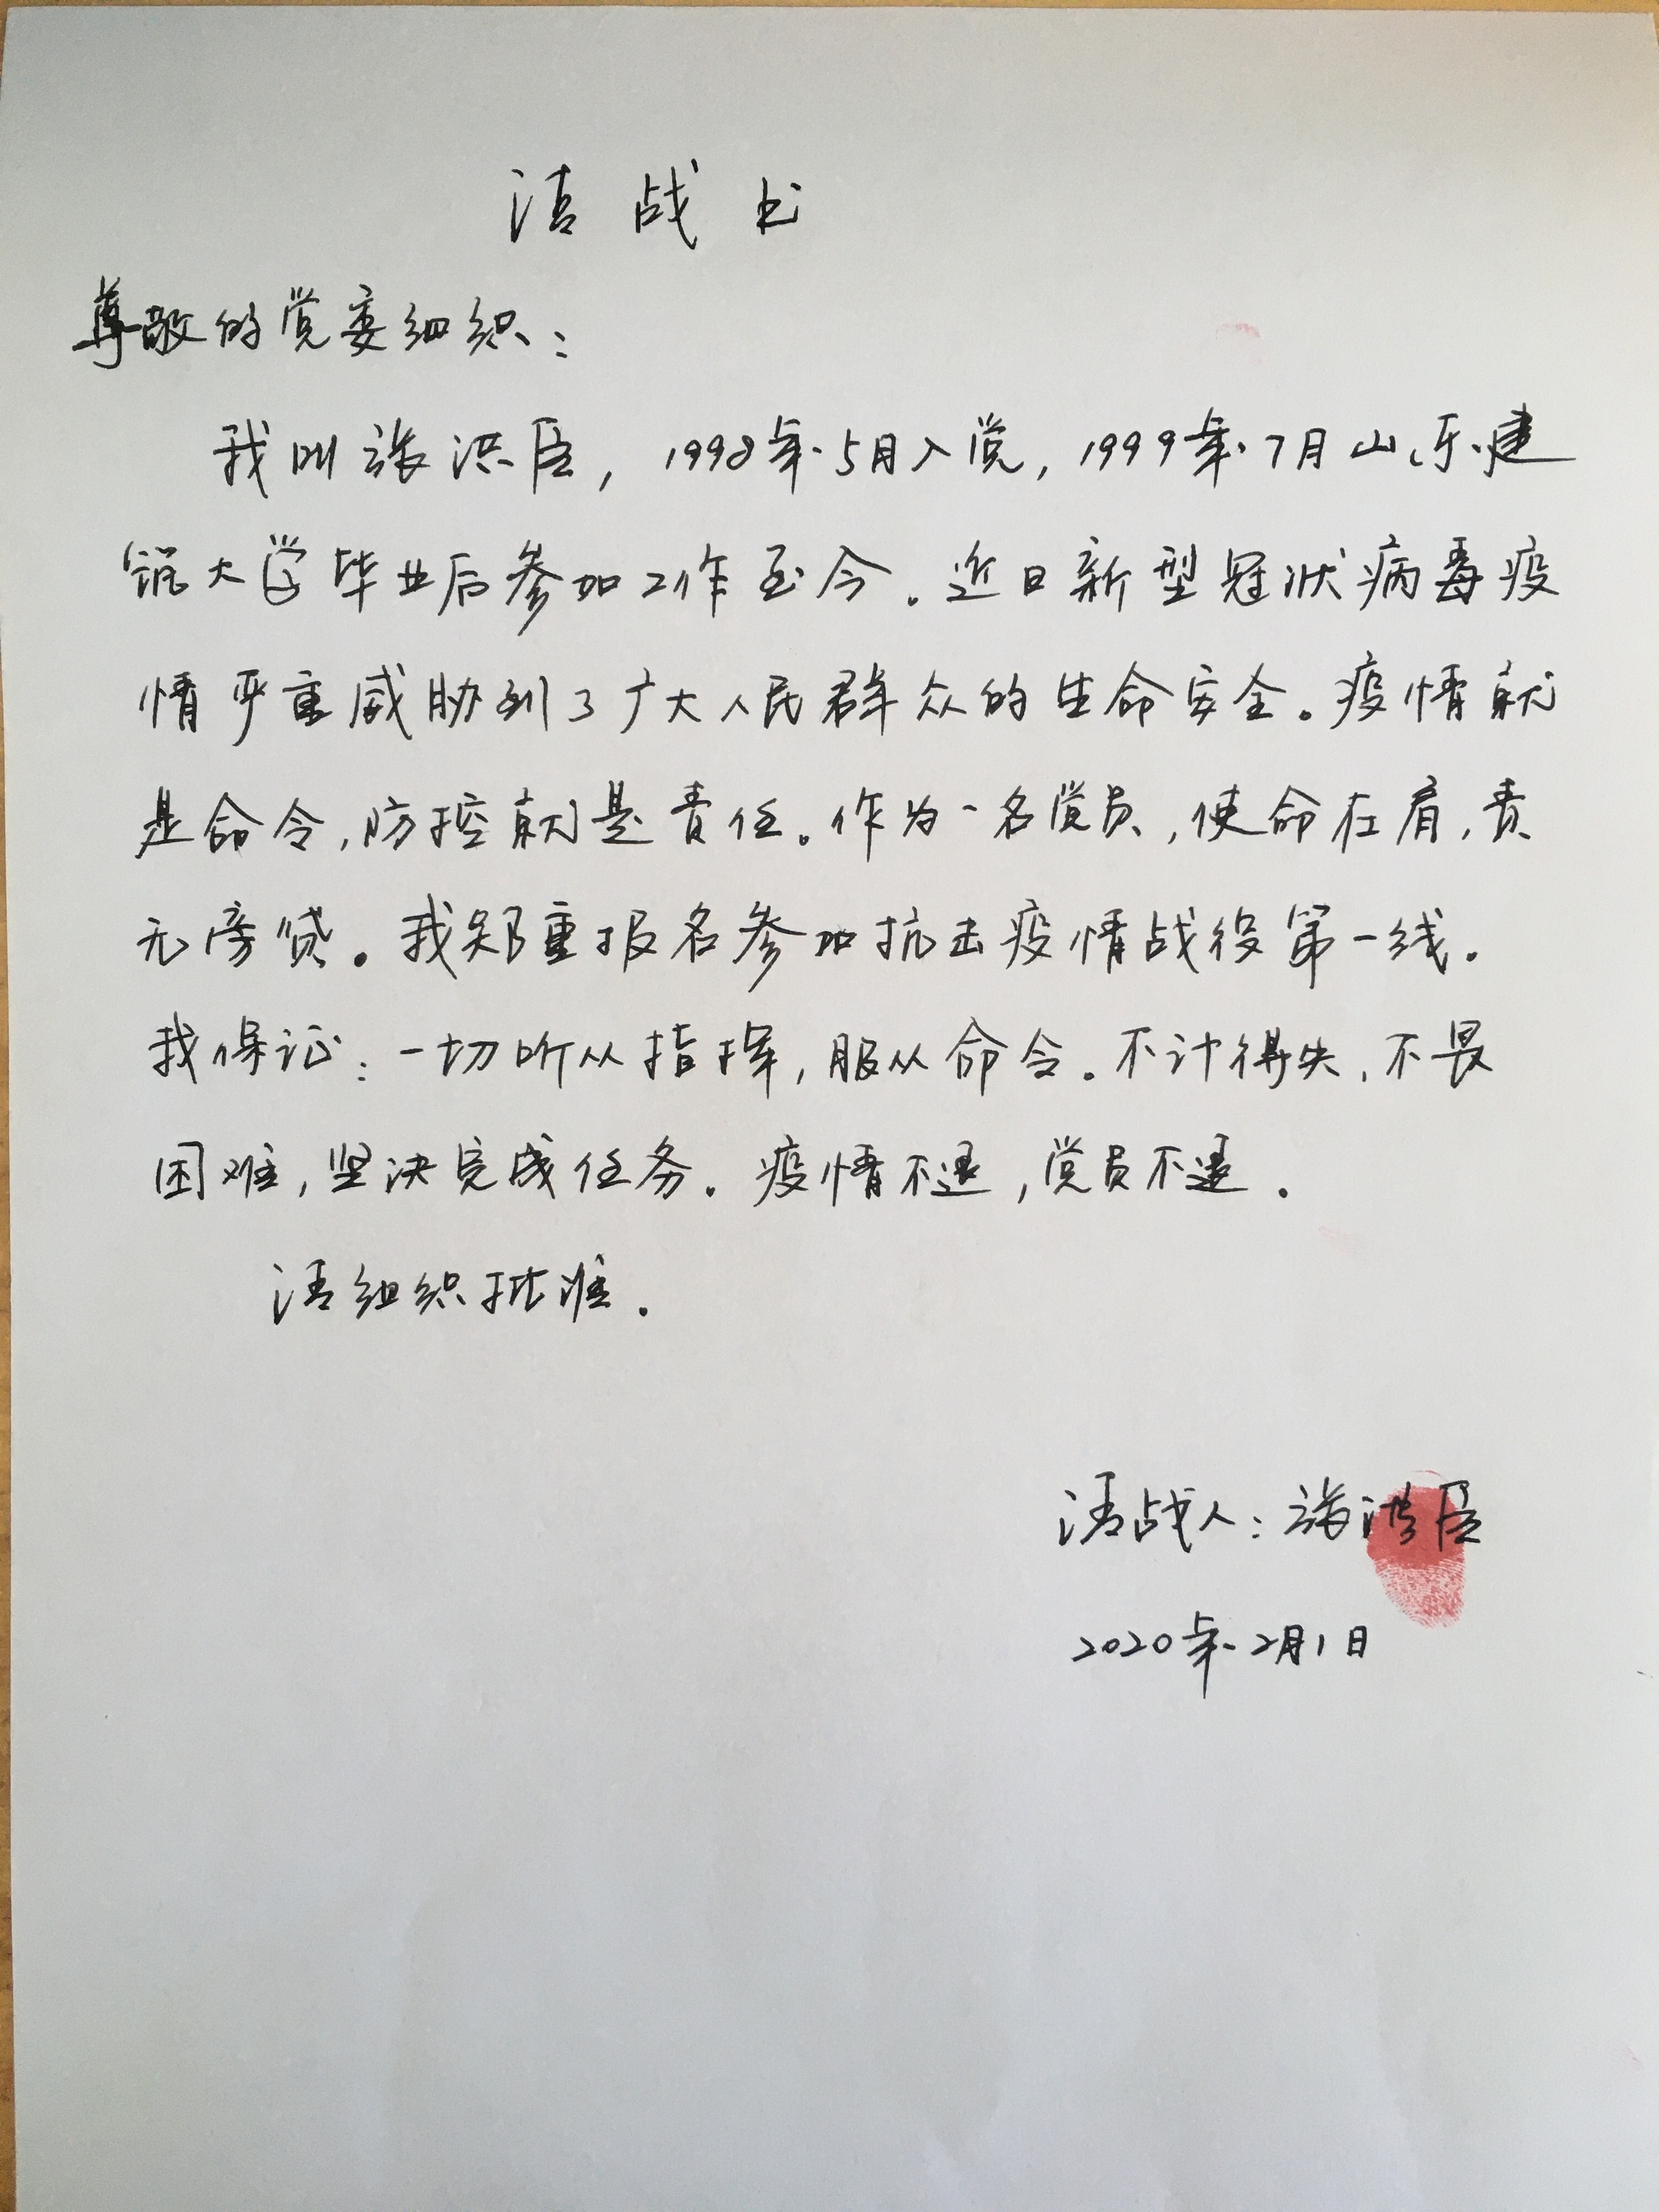 请战书
尊敬的党委组织：
我叫张洪臣，1998年5月入党，1999年7月山东建
筑大学毕业后参加工作至今。近日新型冠状病毒疫
情严重威胁到了广大人民群众的生命安全。疫情就
是命令，防控就是责任。作为一名党员，使命在肩，责
无旁贷。我郑重报名参加抗击疫情战役第一线。
我保证：一切听从指挥，服从命令。不计得失，不畏
困难，坚决完成任务。疫情不退，党员不退。
请组织批准。
请战人：张洪臣
2020年2月1日